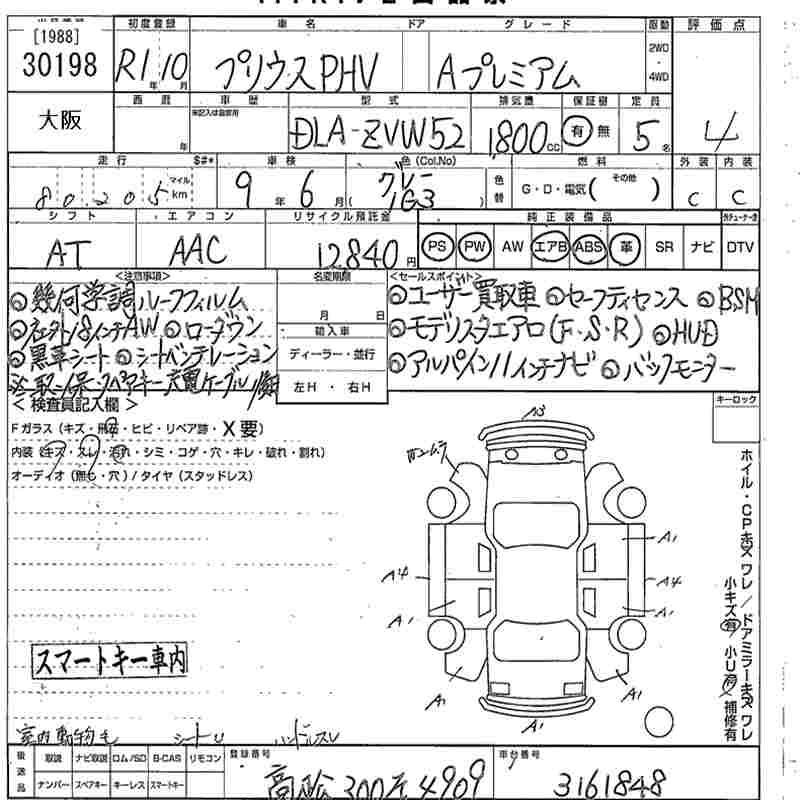 [1988]
初度登録 車名 ドア グレード 駆動 評価点
30198 R1年 10月 プリウスPHV Aプレミアム 2WD・4WD 4
西暦 車歴 型式 排気量 保証書 定員
大阪 年 未記入は自家用 DLA-ZVW52 1,800cc 有 無 5名
走行 $#* 車検 色(Col.No) 燃料 外装 内装
80205 マイル km 9年 6月 グレー (1G3) 色替 G・D・電気( その他 ) C C
シフト エアコン リサイクル預託金 純正装備品
AT AAC 12840円 PS PW AW エアB ABS 革 SR ナビ DTV
<注意事項> 名変期限 <セールスポイント>
◎幾何学調ルーフフィルム 月 日 ◎ユーザー買取車 ◎セーフティセンス ◎BSM
◎社外18インチAW ◎ローダウン 輸入車 ◎モデリスタエアロ(F・S・R) ◎HUD
◎黒革シート ◎シートベンチレーション ディーラー・並行 ◎アルパイン11インチナビ ◎バックモニター
取・保・スペアキー 充電ケーブル 左H・右H
<検査員記入欄> キーロック
Fガラス(キズ・飛石・ヒビ・リペア跡・X要)
内装(キズ・スレ・汚れ・シミ・コゲ・穴・キレ・破れ・割れ)
オーディオ(無し・穴)/タイヤ(スタッドレス)
A3
A1
A4 A4
A1 A1
A1 A1
A1
ホイル・CPキズ ワレ/ドアミラーキズ ワレ
小キズ有 小U有 補修有
スマートキー車内
室内動物毛 シートU ハンドルスレ
後送品 取説 ナビ取説 ロム/SD B-CAS リモコン 登録番号 車台番号
ナンバー スペアキー キーレス スマートキー 高松 300 4909 3161848